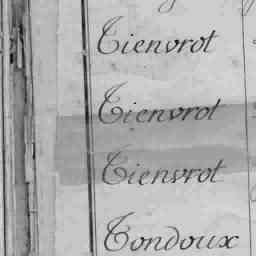 Tienvrot
Tienvrot
Tienvrot
Tondoux